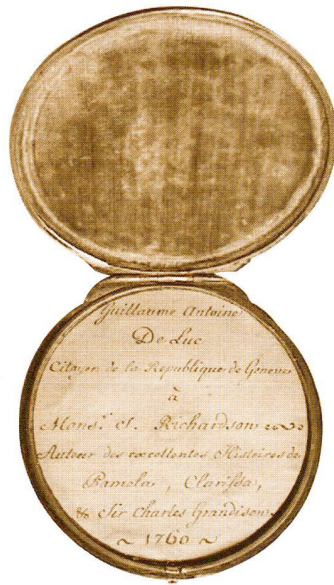 Guillaume Antoine
De Luc
Citoyen de la Republique de Geneve
à
Mons.r S. Richardson
Auteur des excellentes Histoires de
Pamela, Clarissa,
& Sir Charles Grandison
~ 1760 ~